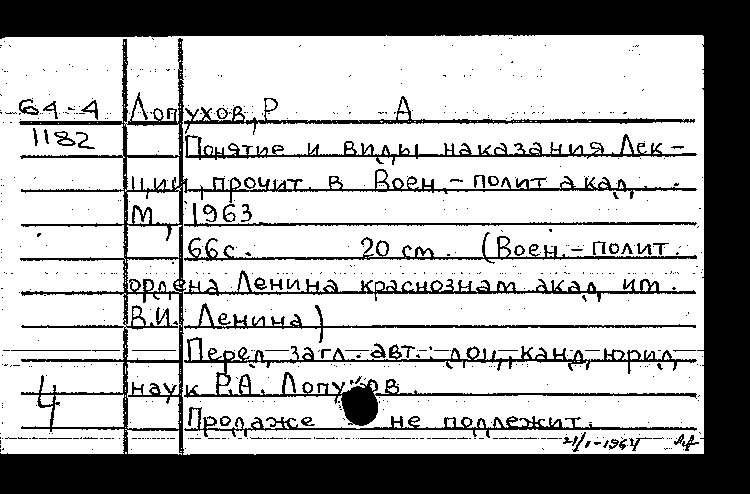 64-4 Лопухов, Р А
1182 Понятие и виды наказания. Лек-
ции, прочит. в Воен.-полит акад. .
М., 1963
66с. 20 cm. (Воен.-полит.
ордена Ленина краснознам акад. им.
В.И. Ленина)
Перед загл. авт.: доц., канд. юрид.
наук Р.А. Лопухов.
4 Продаже не подлежит.
21/I-1964